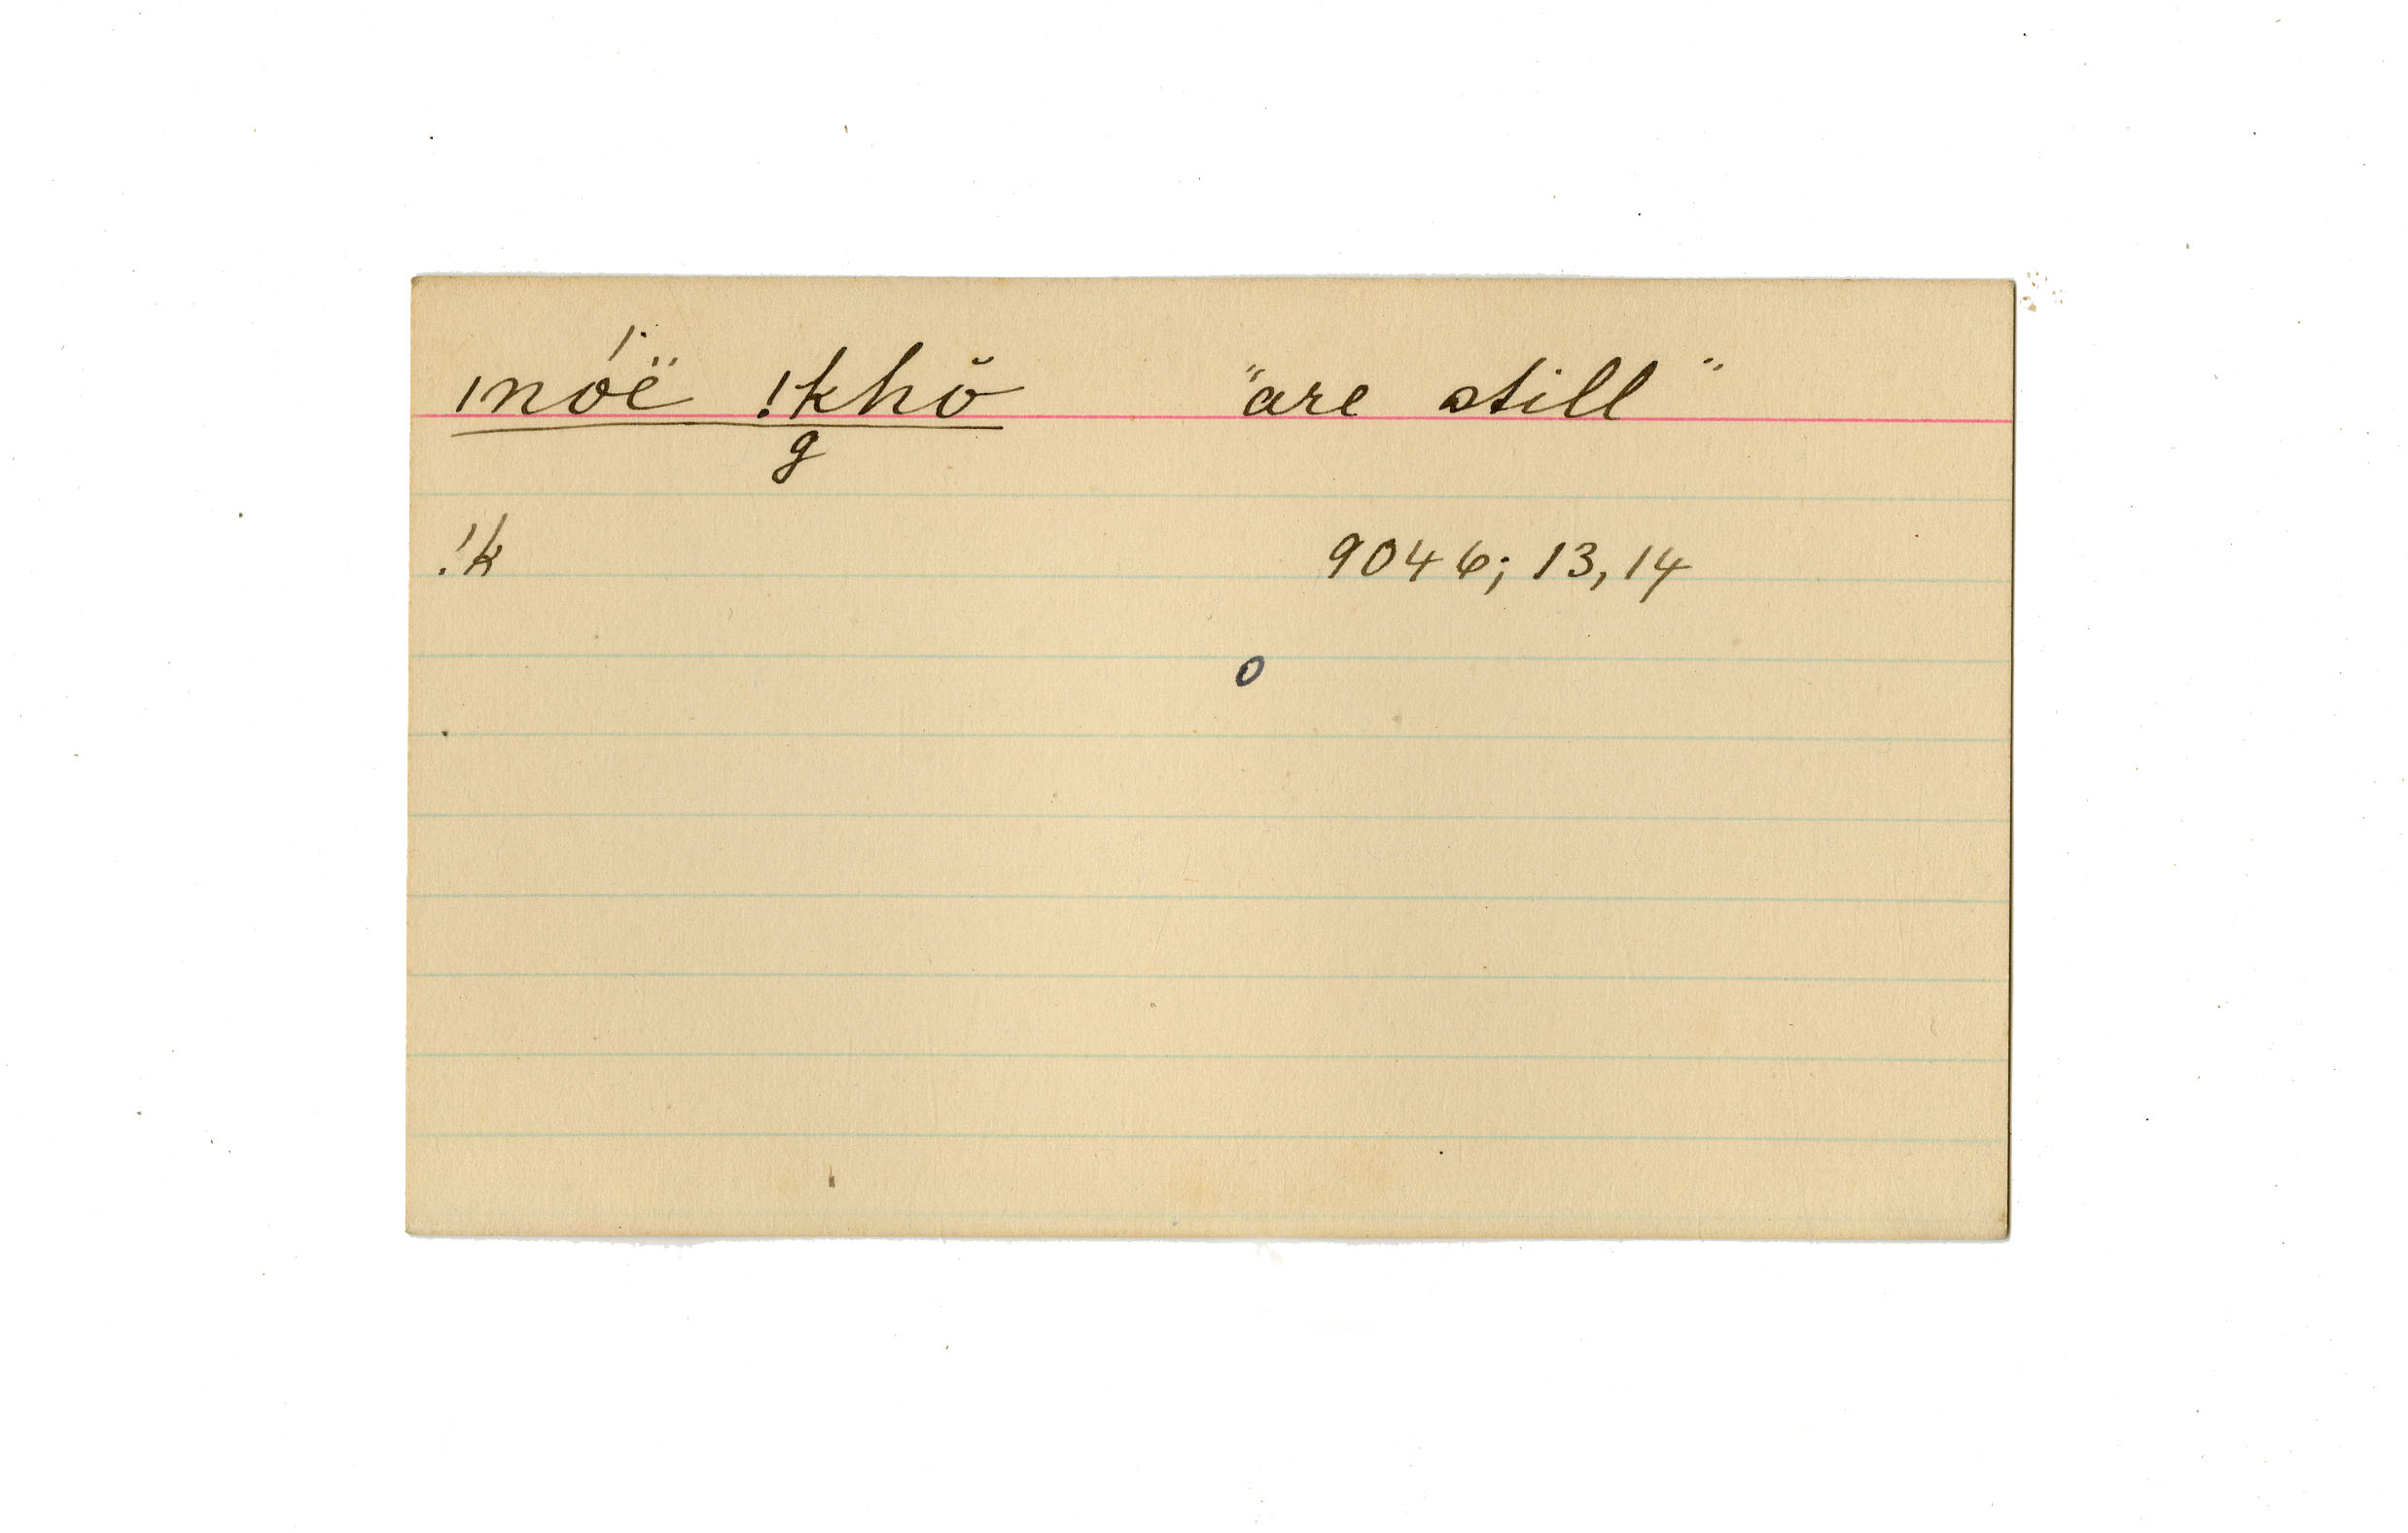 ǀnóë !khŏ "are still"
g
!k 9046; 13, 14
o